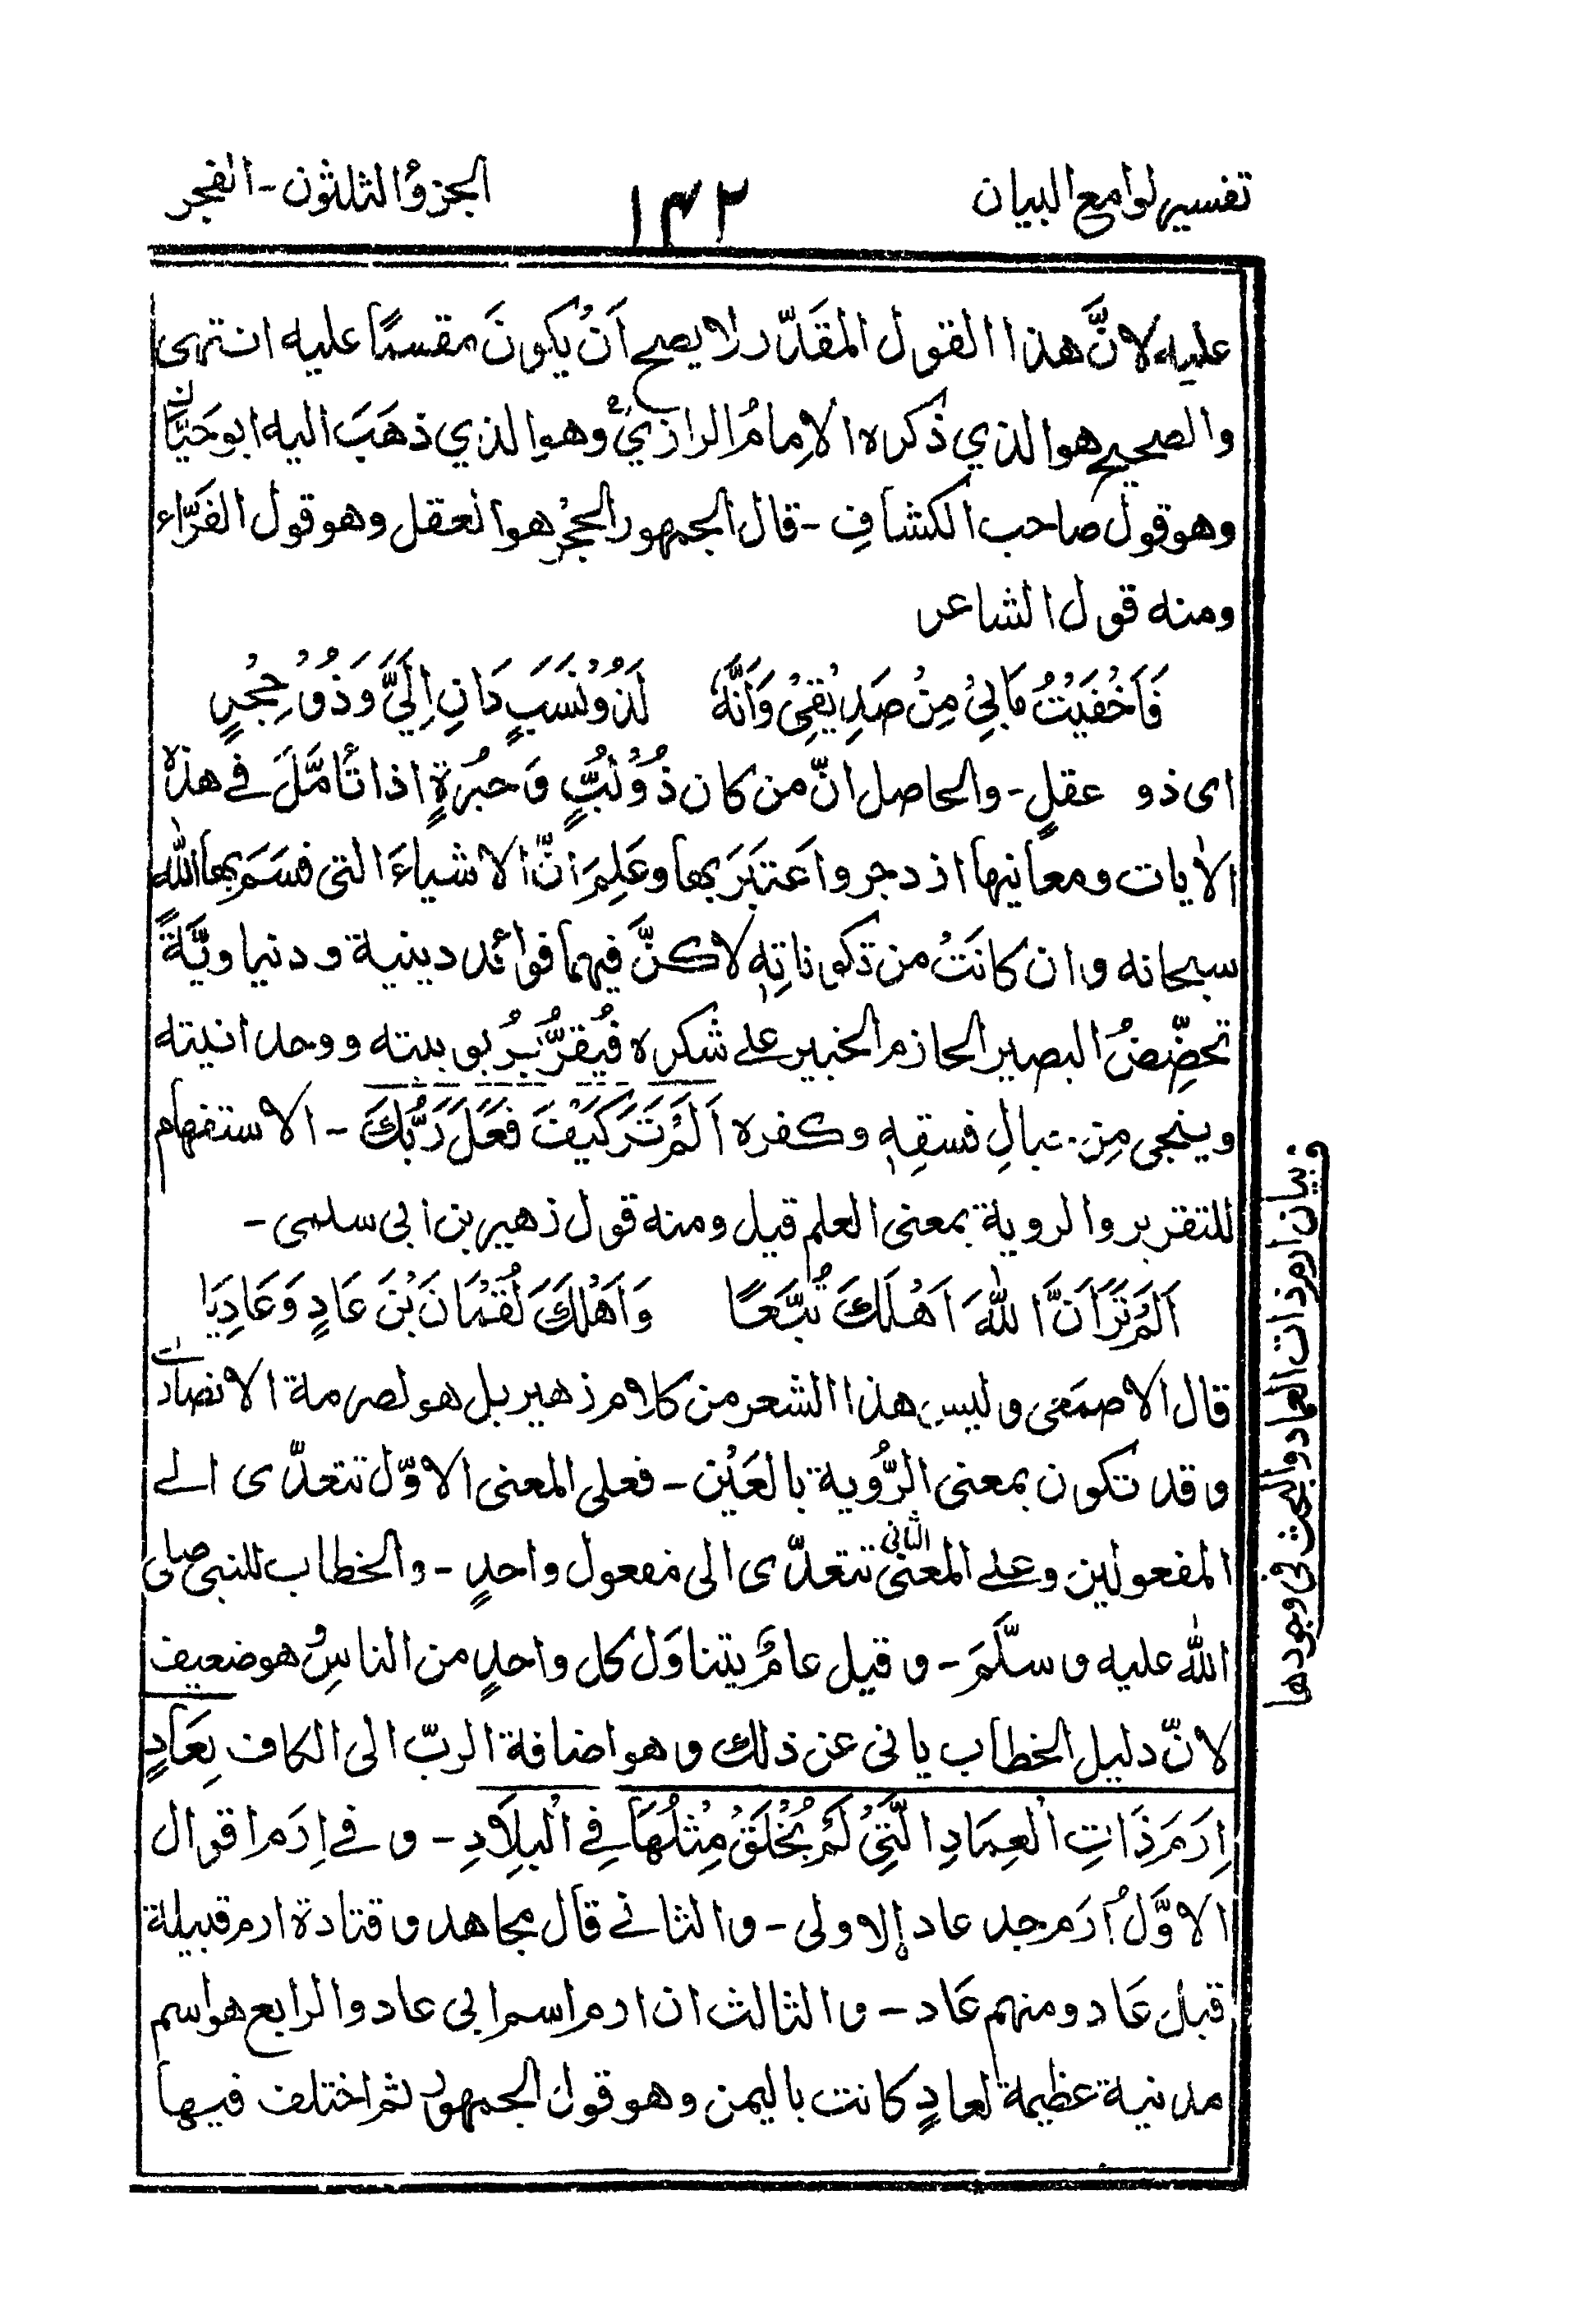 تفسير لوامع البيان
١٣٢
الجزؤ الثلثون - الفجر
عليه لانَّ هذا القول المقدّر لا يصح اَنْ يكونَ مقسمًا عليه انتهى
والصحيح هو الذي ذكره الاِمامُ الرازيؒ وهو الذي ذهَبَ اليه ابوحَيَّان
وهو قول صاحب الكشافِ - قال الجمهور الحِجْر هو العقل وهو قول الفَرّاء
ومنه قول الشاعر
فَاَخْفَيْتُ مَابِيْ مِنْ صَدِيْقِيْ وَاَنَّهٗ لَذُوْنَسَبٍ دَانٍ اِلَيَّ وَذُوْ حِجْرٍ
اى ذو عقلٍ - والحاصل انّ من كان ذُوْلُبٍّ وَخبُرةٍ اذا تأمَّلَ في هذه
الاٰيات ومعانيها اذدجر واعَتبَرَ بها وعَلِمَ انّ الاشياءَ التى قسَمَ بها الله
سبحانه وان كانَتْ من تكوناتِهٖ لاكنَّ فيهما فوائد دينية ودنياويَّةً
تحضِّضُ البصير الحازم الخبير علے شكره فيُقرُّ بِرُبوبيته ووحدانيته
وينجى مِن وبالِ فسقِهٖ وكفره اَلَمْ تَرَ كَيْفَ فَعَلَ رَبُّكَ - الاستفهام
للتقرير والروية بمعنى العلم قيل ومنه قول زهير بن ابى سلمى -
اَلَمْ تَرَ اَنَّ اللّٰهَ اَهْلَكَ تُبَّعًا وَاَهْلَكَ لُقْمَانَ بْنَ عَادٍ وَعَادِيَا
قال الاصمَعى وليس هذا الشعر من كلام زهير بل هو لصرمة الانصارى
وقد تكون بمعنى الرُّوية بالعَيْن - فعلى المعنى الاوّل تتعدّى الے
المفعولين وعلے المعنى الثانى تتعدّى الى مفعول واحدٍ - والخطاب للنبى صلى
الله عليه وسلّمَ - وقيل عامٌ يتناوَل كل واحدٍ من الناسِ وهو ضعيف
لانّ دليل الخطاب يابى عن ذلك وهو اضافة الربّ الى الكاف بِعَادٍ
اِرَمَ ذَاتِ الْعِمَادِ الَّتِيْ لَمْ يُخْلَقْ مِثْلُهَا فِي الْبِلَادِ - وفے اِرَم اقوال
الاوَّلُ اُرَم جد عاد الاولى - والثانے قال مجاهد وقتادة ارم قبيلة
قبل عَاد ومنهم عَاد - والثالث ان ارم اسم ابى عاد والرابع هو اسم
مدنية عظيمة لعادٍ كانت باليمن وهو قول الجمهور ثم اختلف فيها
وبيان ارم ذات العماد والبحث فى وجودها